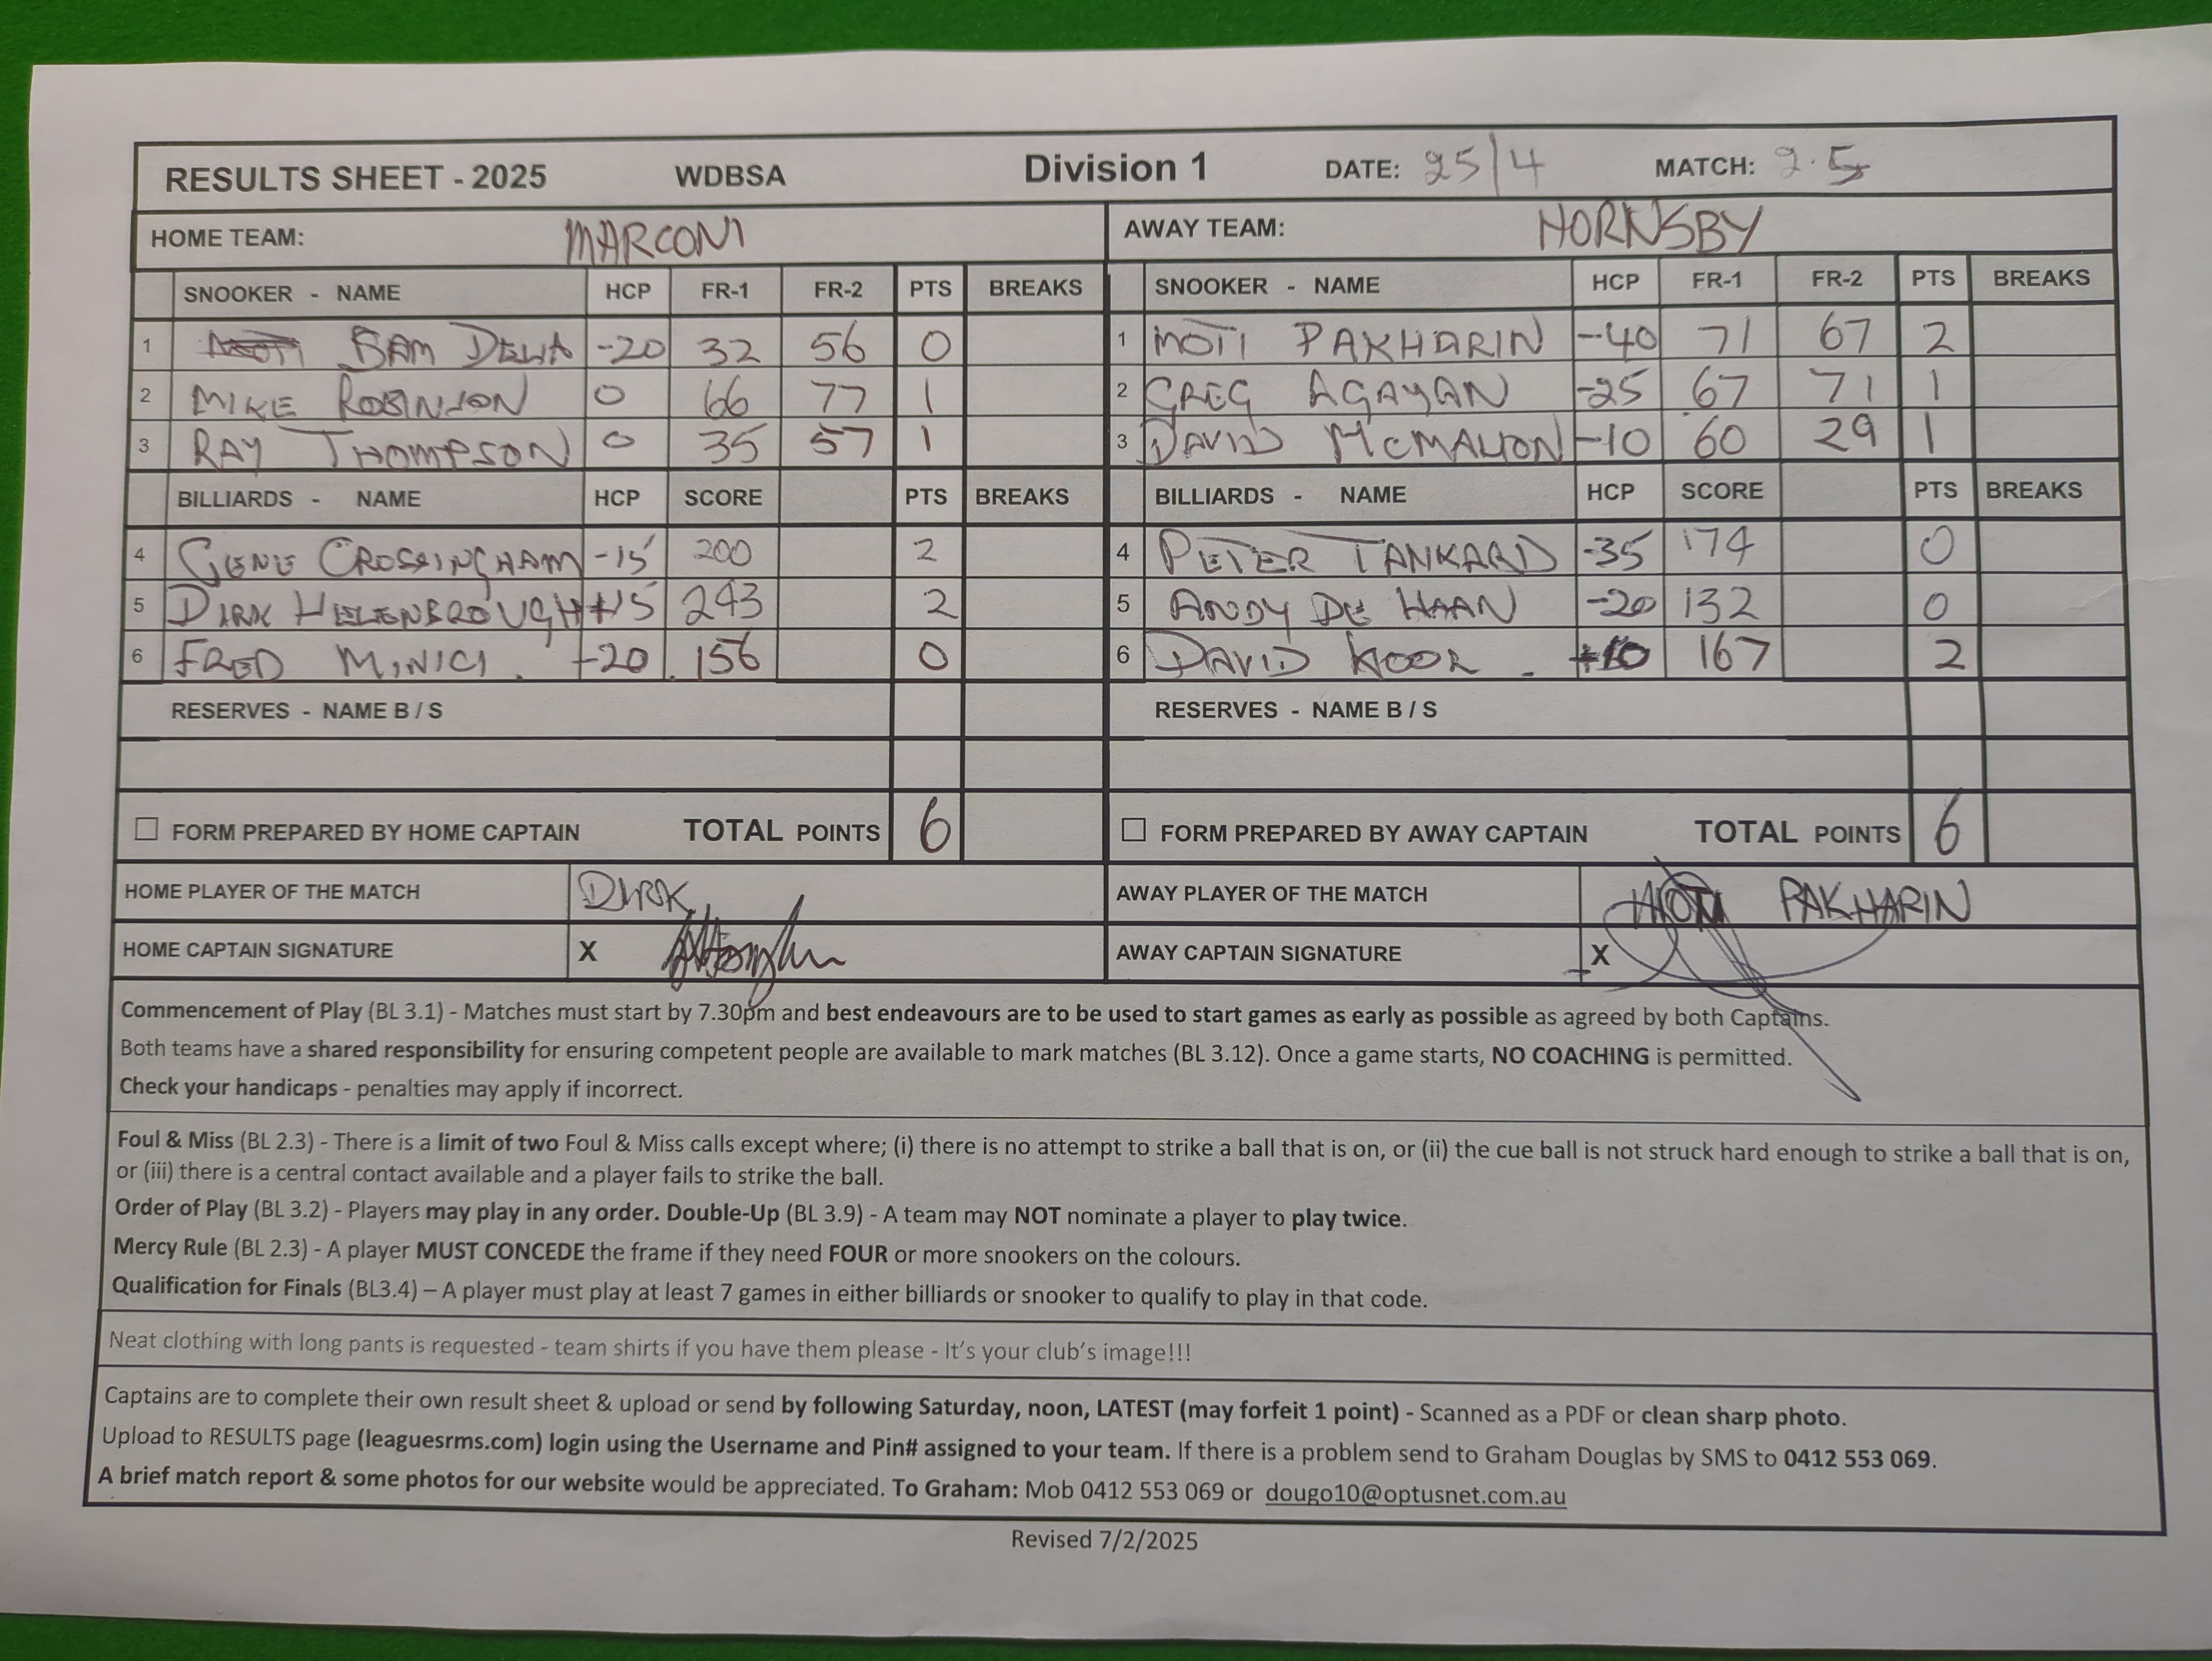 RESULTS SHEET - 2025 WDBSA Division 1 DATE: 25/4 MATCH: 2.5
HOME TEAM: MARCONI AWAY TEAM: HORNSBY
SNOOKER - NAME HCP FR-1 FR-2 PTS BREAKS SNOOKER - NAME HCP FR-1 FR-2 PTS BREAKS
1 SAM -20 32 56 0 1 MOTI PAKHARIN -40 71 67 2
2 MIKE ROBINSON 0 66 77 1 2 GREG AGAYAN -25 67 71 1
3 RAY THOMPSON 0 35 57 1 3 DAVID MCMAHON -10 60 29 1
BILLIARDS - NAME HCP SCORE PTS BREAKS BILLIARDS - NAME HCP SCORE PTS BREAKS
4 GENE CROSSINGHAM -15 200 2 4 PETER TANKARD -35 174 0
5 DIRK HELENBROUGH +15 243 2 5 ANDY DE HAAN -20 132 0
6 FRED MINICI. -20 156 0 6 DAVID KOOR. 167 2
RESERVES - NAME B / S RESERVES - NAME B / S
FORM PREPARED BY HOME CAPTAIN TOTAL POINTS 6 FORM PREPARED BY AWAY CAPTAIN TOTAL POINTS 6
HOME PLAYER OF THE MATCH DIRK AWAY PLAYER OF THE MATCH MOTI PAKHARIN
HOME CAPTAIN SIGNATURE X AWAY CAPTAIN SIGNATURE X
Commencement of Play (BL 3.1) - Matches must start by 7.30pm and best endeavours are to be used to start games as early as possible as agreed by both Captains.
Both teams have a shared responsibility for ensuring competent people are available to mark matches (BL 3.12). Once a game starts, NO COACHING is permitted.
Check your handicaps - penalties may apply if incorrect.
Foul & Miss (BL 2.3) - There is a limit of two Foul & Miss calls except where; (i) there is no attempt to strike a ball that is on, or (ii) the cue ball is not struck hard enough to strike a ball that is on,
or (iii) there is a central contact available and a player fails to strike the ball.
Order of Play (BL 3.2) - Players may play in any order. Double-Up (BL 3.9) - A team may NOT nominate a player to play twice.
Mercy Rule (BL 2.3) - A player MUST CONCEDE the frame if they need FOUR or more snookers on the colours.
Qualification for Finals (BL3.4) – A player must play at least 7 games in either billiards or snooker to qualify to play in that code.
Neat clothing with long pants is requested - team shirts if you have them please - It's your club's image!!!
Captains are to complete their own result sheet & upload or send by following Saturday, noon, LATEST (may forfeit 1 point) - Scanned as a PDF or clean sharp photo.
Upload to RESULTS page (leaguesrms.com) login using the Username and Pin# assigned to your team. If there is a problem send to Graham Douglas by SMS to 0412 553 069.
A brief match report & some photos for our website would be appreciated. To Graham: Mob 0412 553 069 or dougo10@optusnet.com.au
Revised 7/2/2025